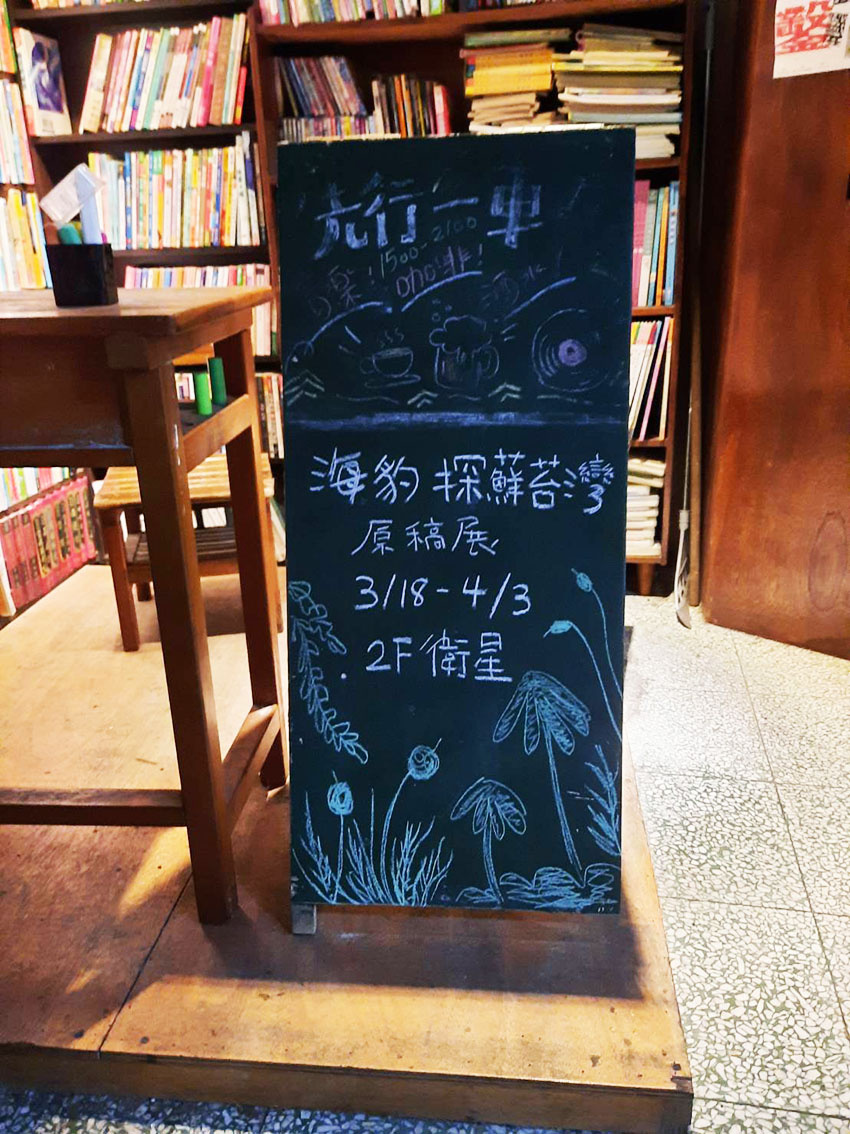 旅行一車
1500-2100
咖啡!
海豹 探蘇苔灣
原稿展
3/18-4/3
2F衛星